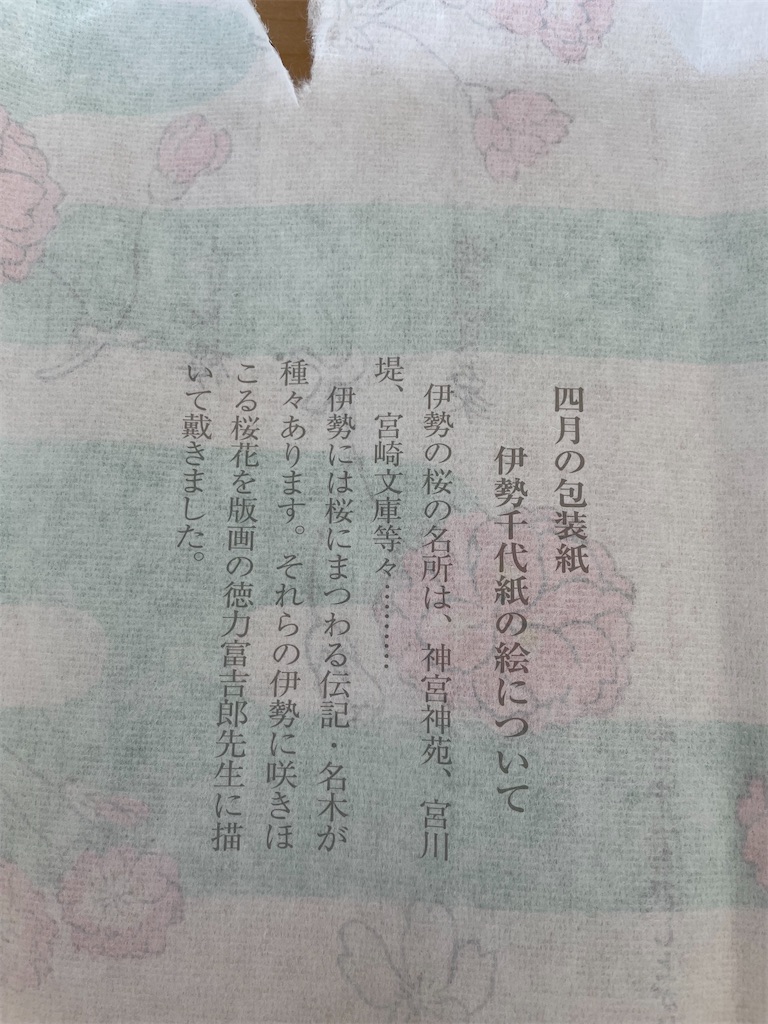 四月の包装紙
伊勢千代紙の絵について
伊勢の桜の名所は、神宮神苑、宮川
堤、宮崎文庫等々………
伊勢には桜にまつわる伝記・名木が
種々あります。それらの伊勢に咲きほ
こる桜花を版画の徳力富吉郎先生に描
いて戴きました。